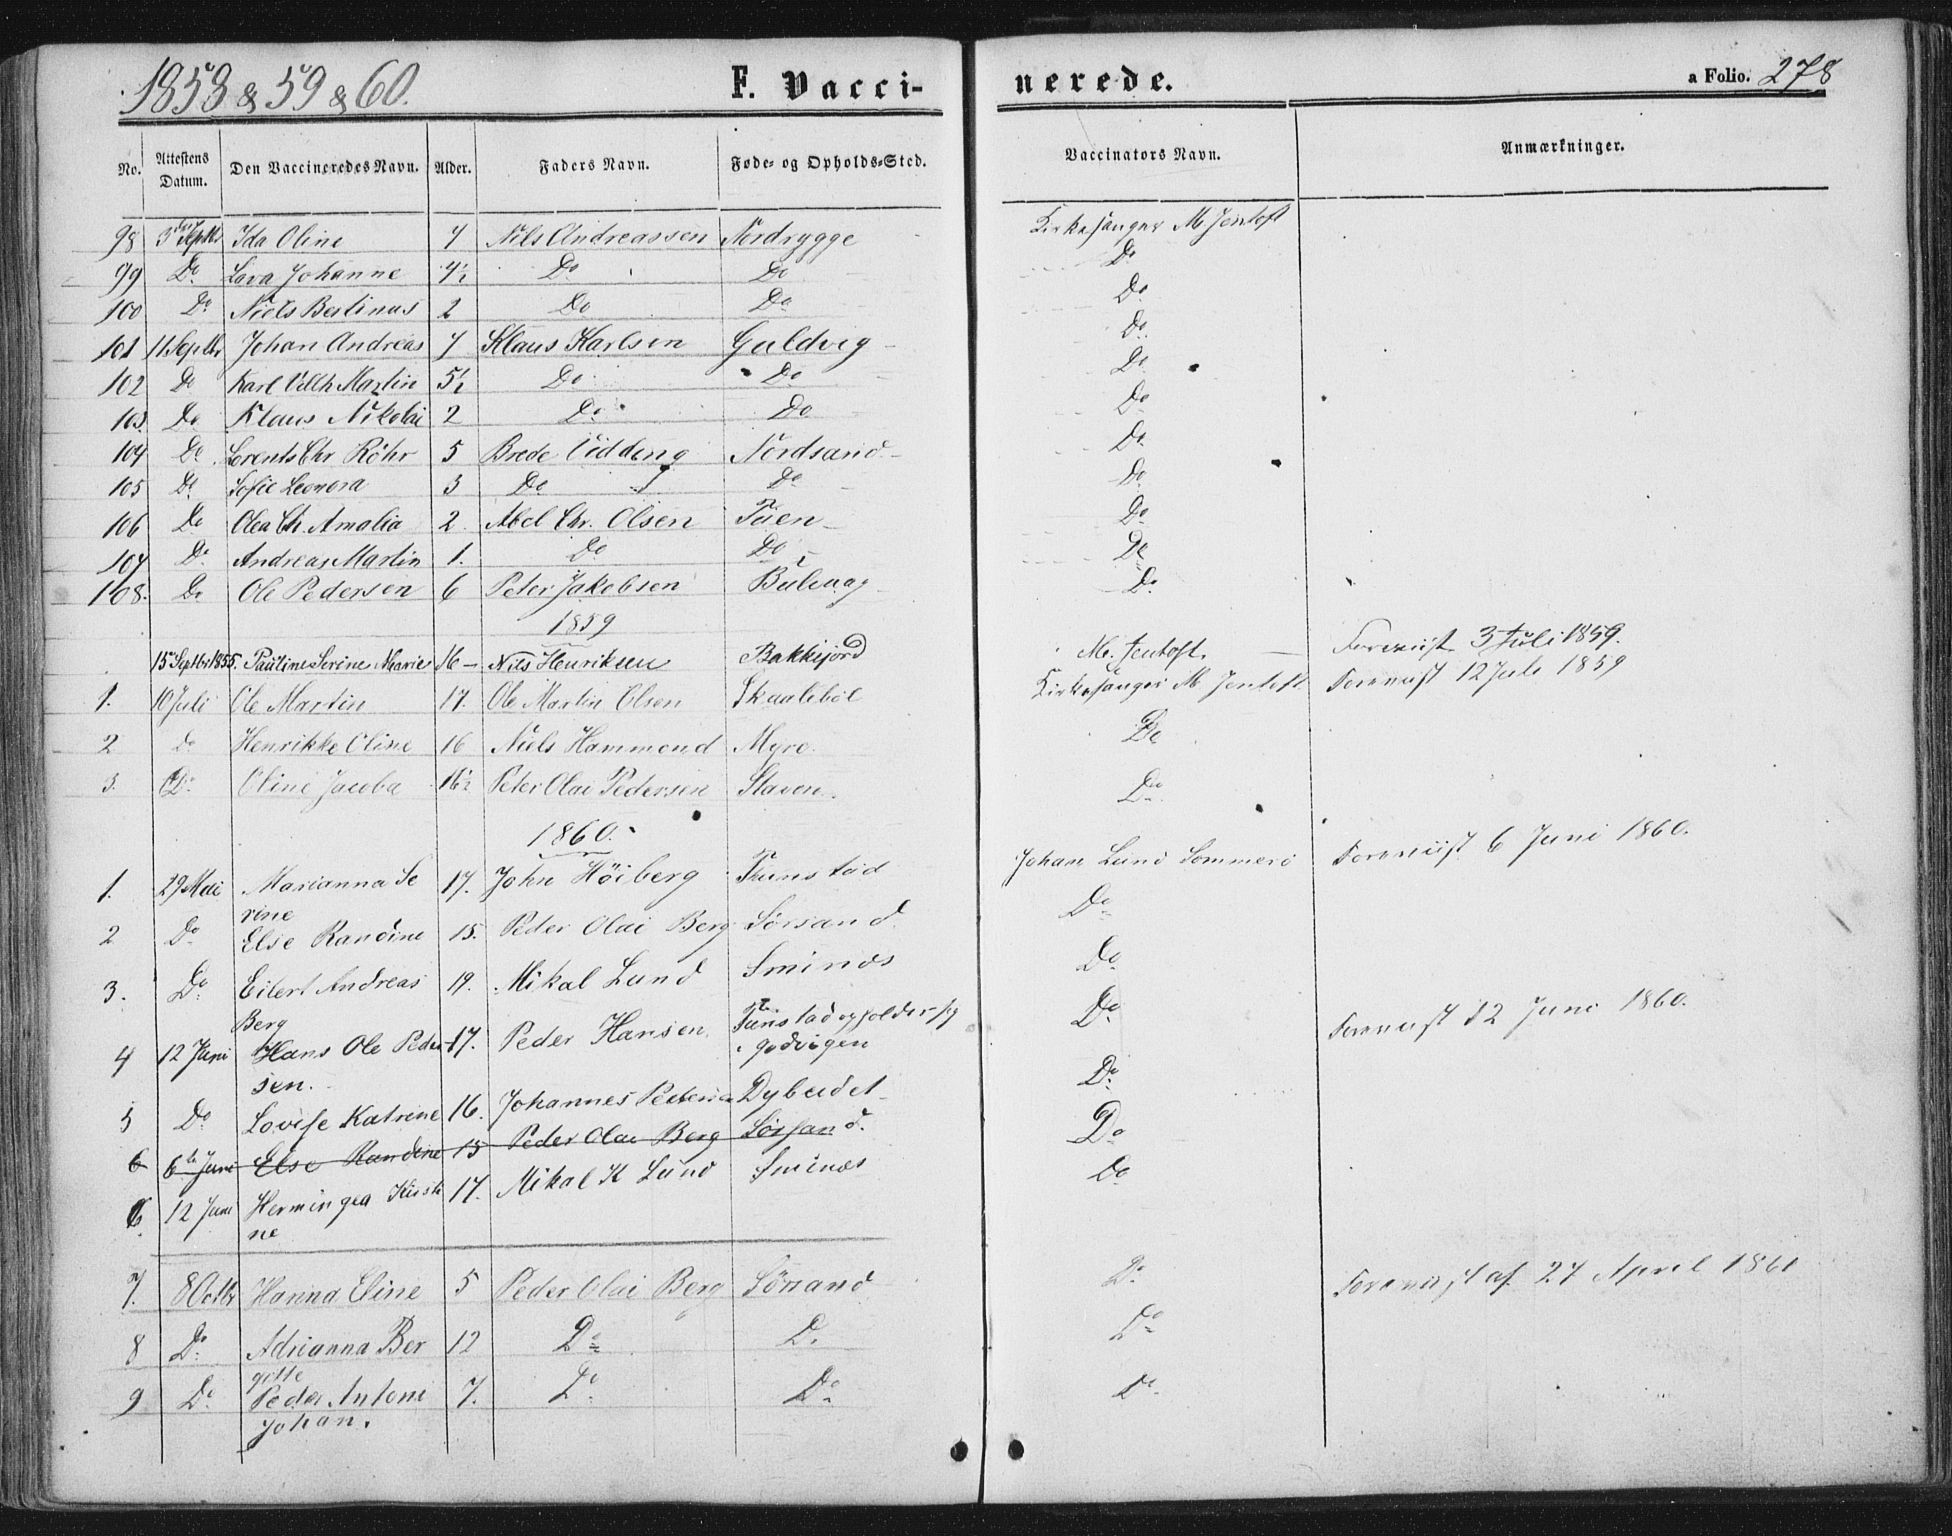 1858 & 59 & 60. F. Vacci- nerede. a Folio. 278
No. Attestens Datum. Den Vaccineredes Navn. Alder. Faders Navn. Føde- og Opholds-Sted. Vaccinators Navn. Anmærkninger.
98 3die Septbr Ida Oline 7 Nils Andreassen Nordrygge Kirkesanger M Jentoft
99 Do Lava Johanne 4½ Do Do Do
100 Do Niels Bertinus 2 Do Do Do
101 11 Septbr Johan Andreas 7 Klaus Karlsen Guldvig Do
102 Do Karl Vilh Martin 5½ Do Do Do
103. Do Klaus Nikolai 2 Do Do Do
104 Do Lorents Chr Röhr 5 Brede Udding Nordsand Do
105 Do Sofie Leonora 3 Do Do Do
106 Do Olea Ch. Amalia 2. Abel Chr. Olsen Tuen Do
107 Do Andreas Martin 1. Do Do Do
108. Do Ole Pedersen 6 Peter Jakobsen Do
1859
15 Septbr 1855. Pauline Serine Marie 16 Nils Henriksen Bakkejord M. Jentoft. Foreviist 3 Juli 1859.
1. 10 Juli Ole Martin 17. Ole Martin Olsen Skaaleböl Kirkesanger M Jentoft Foreviist 12 Juli 1859
2 do Henrikke Oline 16 Niels Hammond Myre Do
3. Do Oline Jacoba 16½ Peter Olai Pedersen Staven. Do
1860.
1. 29 Mai Marianna Se 17. John Höiberg Tunstad Johan Lund Sommerö Foreviist 6 Juni 1860.
rine
2 Do Else Randine 15. Peder Olai Berg Sörsand Do
3. Do Eilert Andreas 19. Mikal Lund Sminæs Do
Berg
4 12 Juni Hans Ole Peder 17. Peder Hansen Tunstad opholder sig Do Foreviist 12 Juni 1860.
sen. i godvigen
5 Do Lovise Katrine 16. Johannes Peterse Dybeidet Do
6 6te Juni Else Randine 15 Peder Olai Berg Sörsand. Do
6. 12 Juni Herminqea Kirsti 17. Mikal K Lund Sminæs Do
ne
7. 8 Octbr Hanna Eline 5 Peder Olai Berg Sörsand Do Foreviist af 27 April 1861
8 Do Adrianna Ber 12 Do Do Do
gitte
9 Do Peder Antoni 7. Do Do Do
Johan.